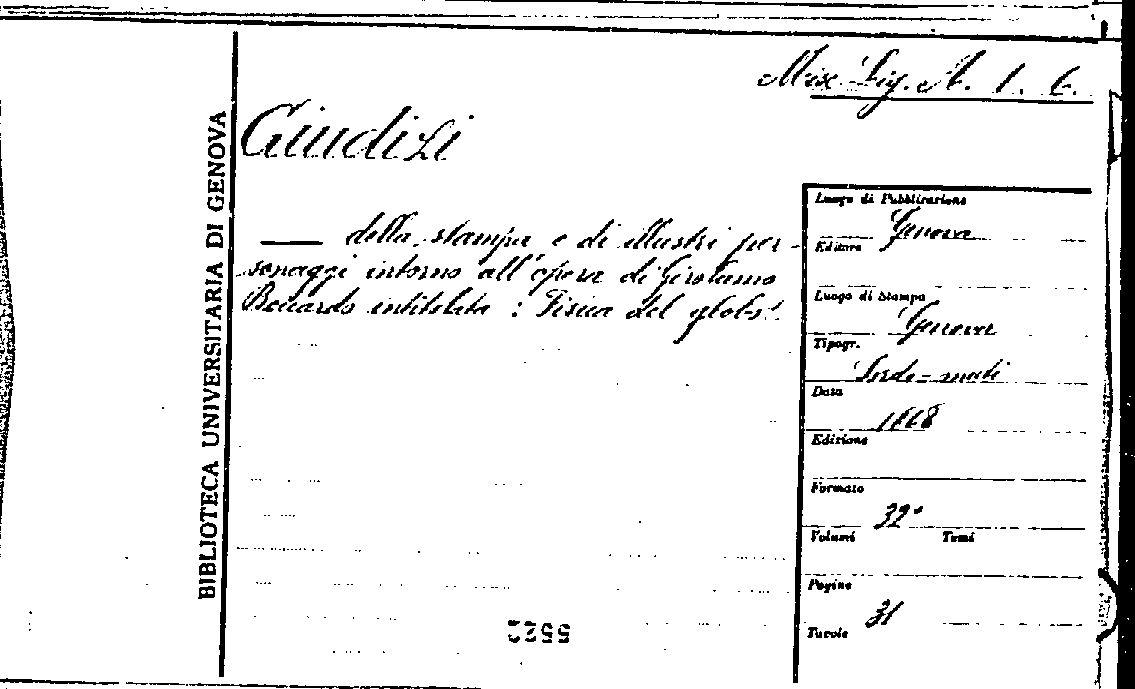 Misc. Lig. A. 1. 6.
Giudizi
BIBLIOTECA UNIVERSITARIA DI GENOVA
—— della stampa e di illustri per-
sonaggi intorno all'opera di Girolamo
Boccardo intitolata : Fisica del globo.
Luogo di Pubblicazione
Genova
Editore
Luogo di Stampa
Genova
Tipogr.
Sordo-muti
Data
1868
Edizione
Formato
32°
Volumi Tomi
Pagine
31
Tavole
5522